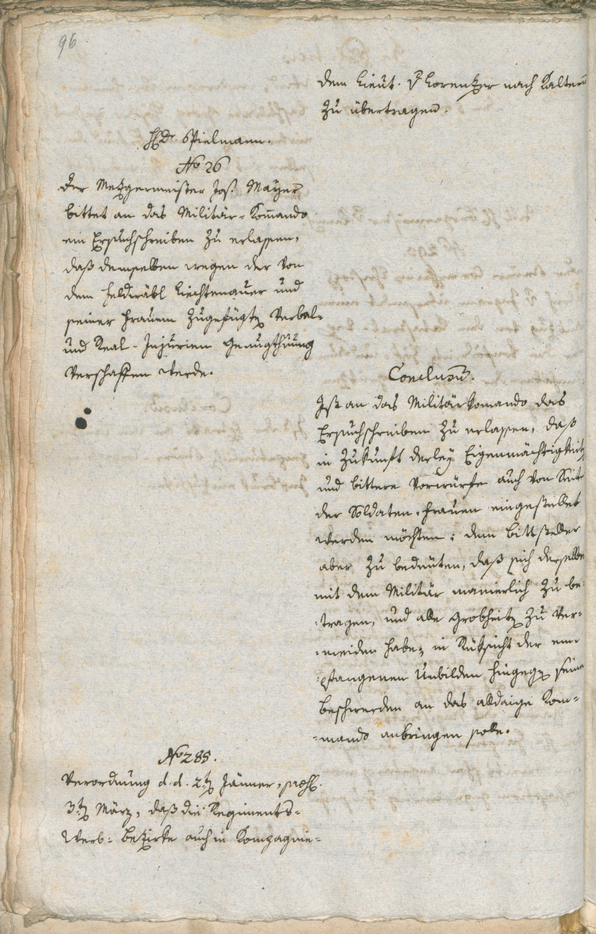 96
dem Lieut. v. Lorenzer nach Kaltern
zu übertragen.
H. Dr. Spielmann.
No 26
Der Metzgermeister Jos. Mayer
bittet an das Militär-Komando
ein Ersuchschreiben zu erlassen,
daß demselben wegen der von
dem Feldwäbl Liechtenauer und
seiner Frauen zugefügten Verbal-
und Real-Injurien Genugthuung
verschaffen werde.
Conclusum.
Ist an das Militärkomando das
Ersuchschreiben zu erlassen, daß
in Zukunft derley Eigenmächtigkeiten
und bittere Vorwürfe auch von Seite
der Soldaten-Frauen eingestellet
werden möchten; dem Bittsteller
aber zu bedeuten, daß sich derselbe
mit dem Militär manierlich zu be-
tragen, und alle Grobheiten zu ver-
meiden habe, in Rücksicht der em-
pfangenen Unbilden hingegen seine
Beschwerden an das alldaige Kom-
mando anbringen solle.
No 285.
Verordnung d. d. 2ten Jänner, praes.
3ten März, daß die Regiments-
Werb-Bezirke auch in Kompagnie-